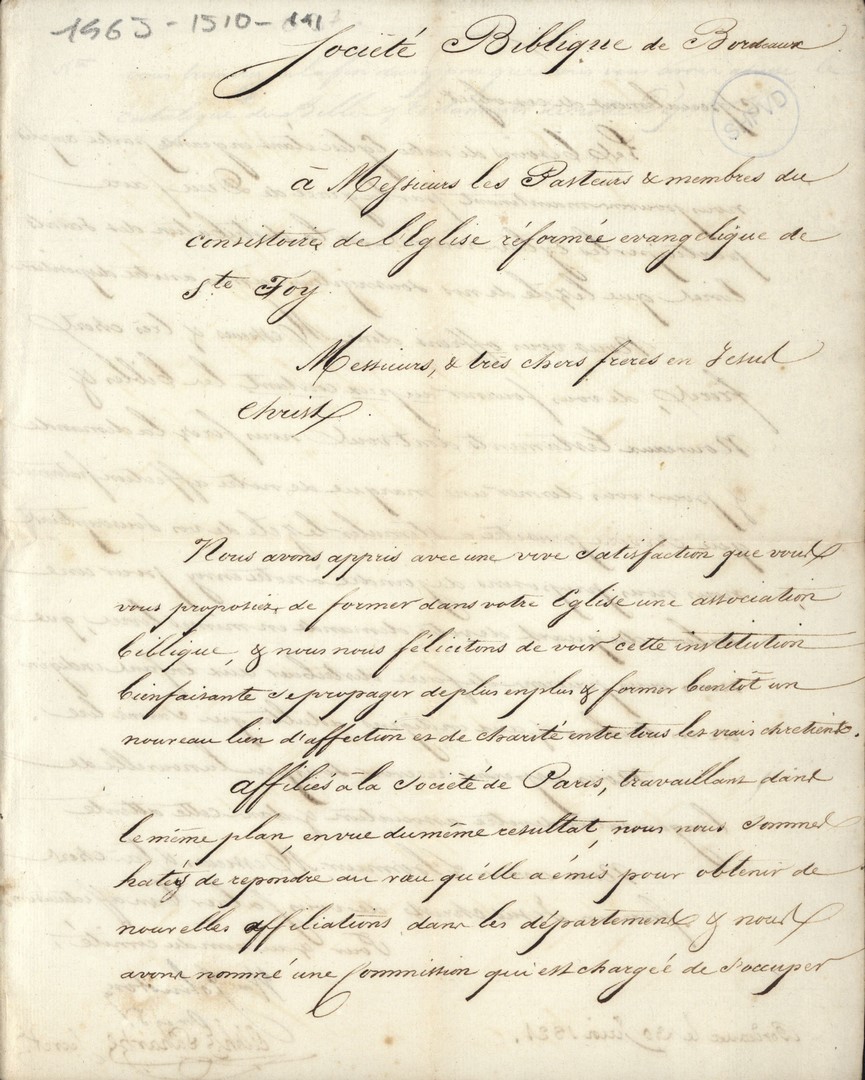 1965-1510-191
Société Biblique de Bordeaux
à Messieurs les Pasteurs & membres du
consistoire, de l'Eglise réformée evangelique de
Ste Foy
Messieurs, & très chers freres en Jesus
Christ.
Nous avons appris avec une vive satisfaction que vous
vous proposiez, de former dans votre Eglise une association
biblique, & nous nous félicitons de voir cette institution
bienfaisante se propager de plus en plus & former bientôt un
nouveau lien d'affection et de charité entre tous les vrais chretiens.
affiliés à la Société de Paris, travaillant dans
le même plan, en vue du même resultat, nous nous sommes
hatés de repondre au vœu qu'elle a émis pour obtenir de
nouvelles affiliations dans les départements & nous
avons nommé une Commission qui est chargée de s'occuper